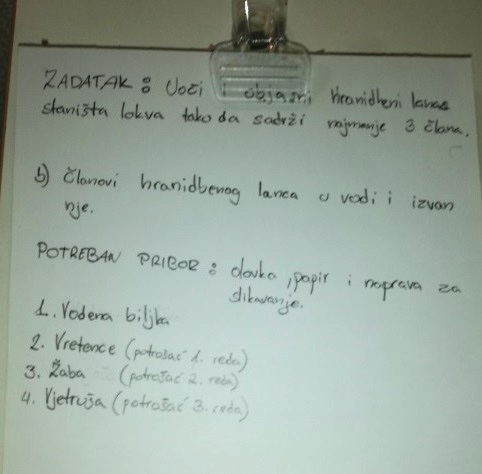 ZADATAK: Uoči i objasni hranidbeni lanac
staništa lokva tako da sadrži najmanje 3 člana.
b) Članovi hranidbenog lanca u vodi i izvan
nje.
POTREBAN PRIBOR: olovka, papir i naprava za
slikavanje.
1. Vodena biljka
2. Vretence (potrošač 1. reda)
3. Žaba (potrošač 2. reda)
4. Vjetruša (potrošač 3. reda)